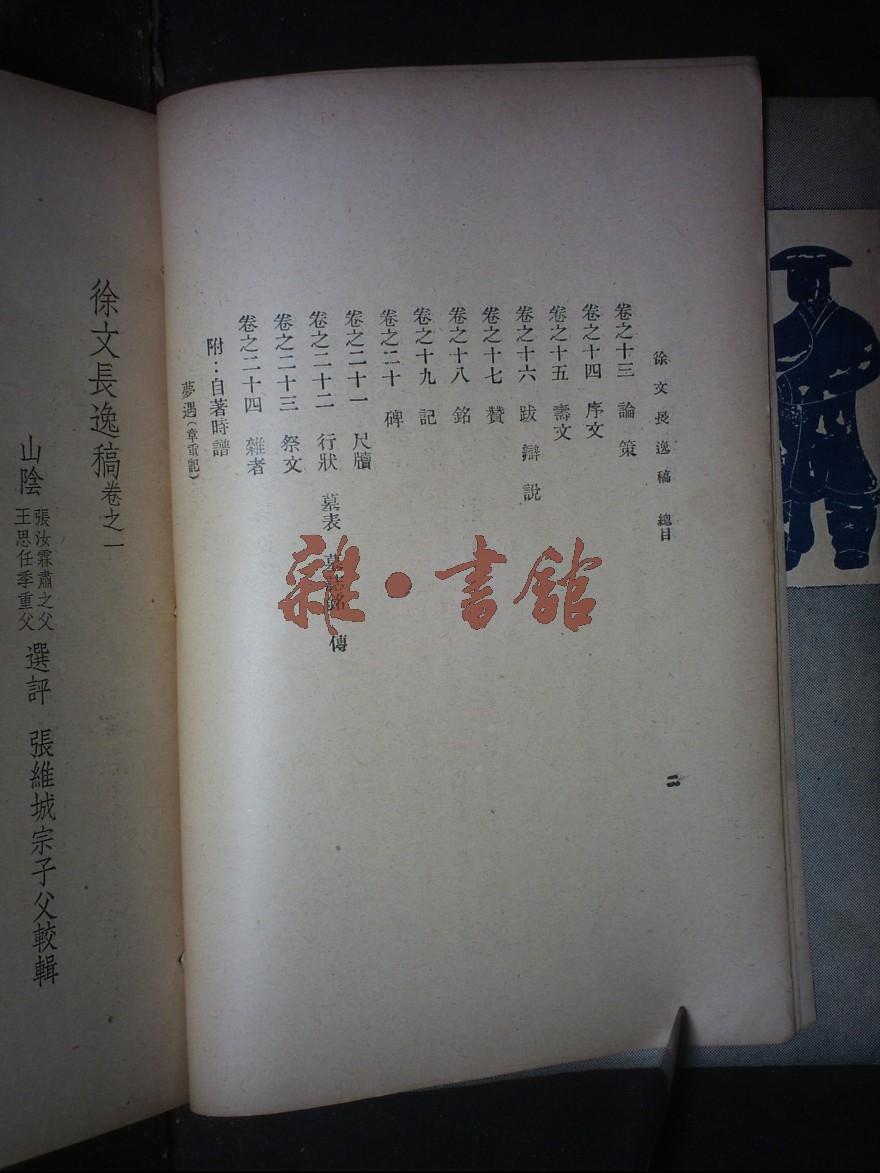 徐文長逸稿 總目
卷之十三 論 策
卷之十四 序文
卷之十五 壽文
卷之十六 跋 辯 說
卷之十七 贊
卷之十八 銘
卷之十九 記
卷之二十 碑
卷之二十一 尺牘
卷之二十二 行狀 墓表 墓誌銘 傳
卷之二十三 祭文
卷之二十四 雜著
附：自著畸譜
夢遇（章重記）
徐文長逸稿卷之一
山陰 張汝霖肅之父 王思任季重父 選評 張維城宗子父較輯
雜·書館